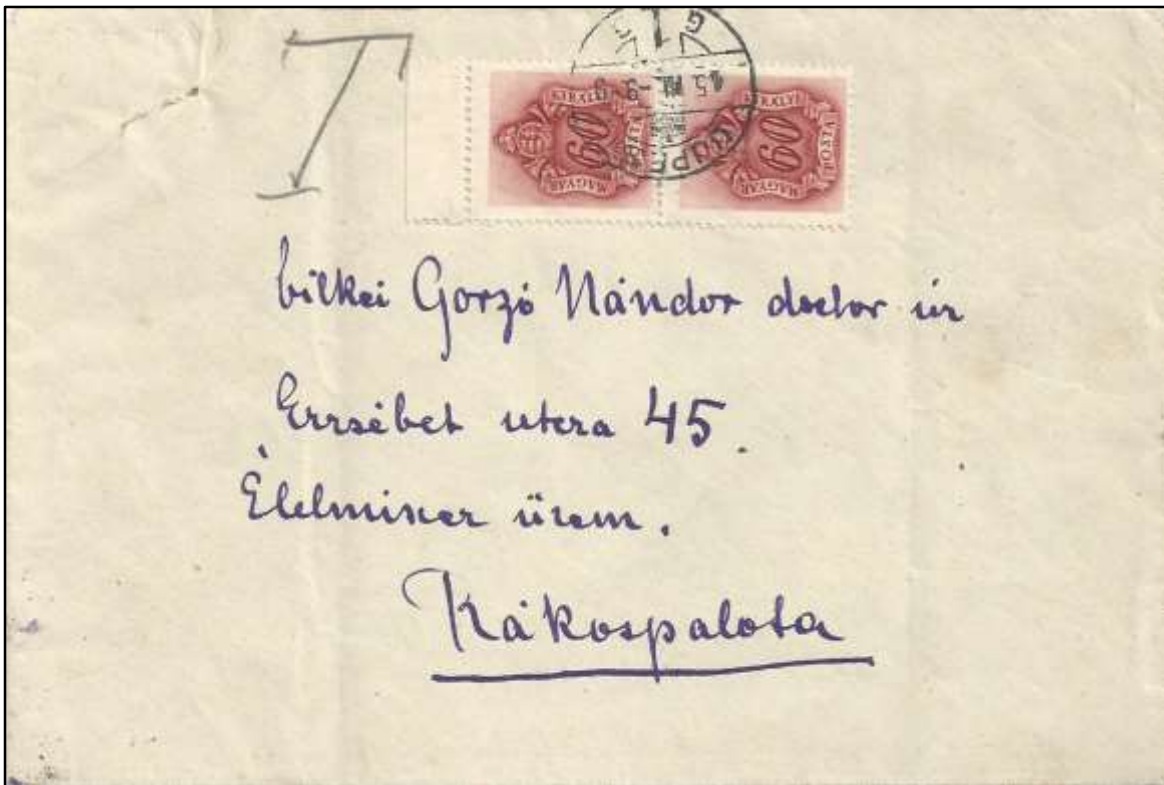 T
MAGYAR KIRÁLYI
60
MAGYAR KIRÁLYI
60
bilkei Gorzó Nándor doctor úr
Erzsébet utcza 45.
Élelmiszer üzem.
Rákospalota